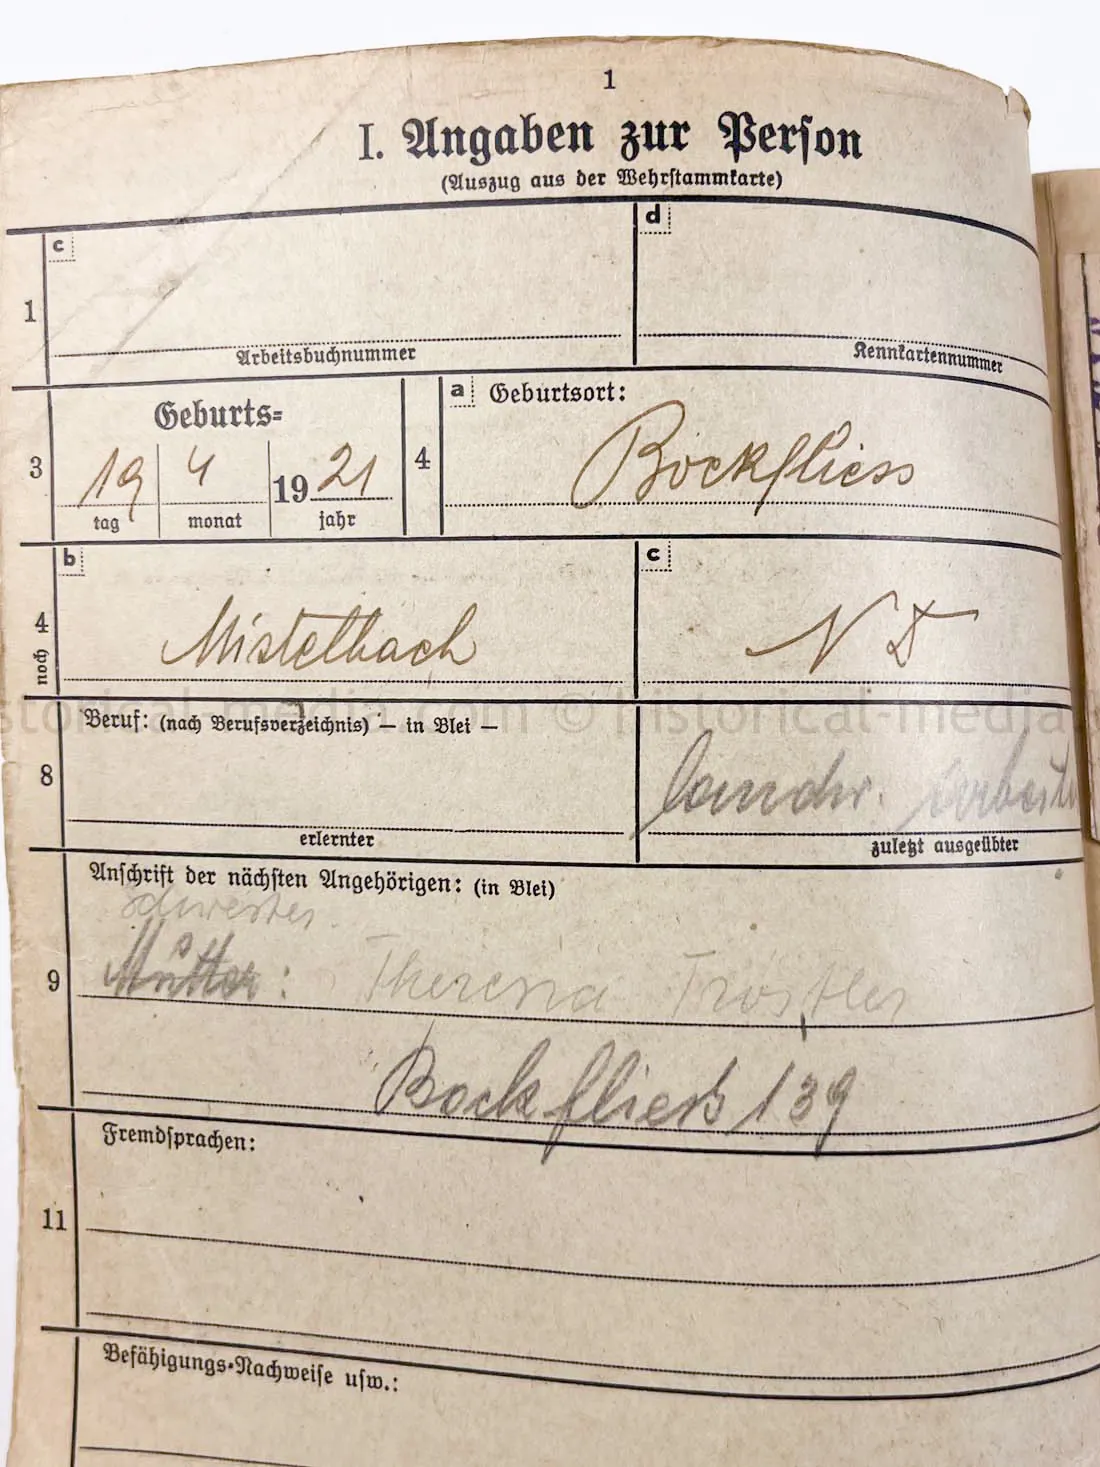 1
I. Angaben zur Person
(Auszug aus der Wehrstammkarte)
1
c
Arbeitsbuchnummer
d
Kennkartennummer
3
Geburts=
19 4 1921
tag monat jahr
4
a Geburtsort:
Bockfliess
noch 4
b
Mistelbach
c
N D
historical-media.com © historical-media
8
Beruf: (nach Berufsverzeichnis) — in Blei —
erlernter
landw. Arbeiter
zuletzt ausgeübter
9
Anschrift der nächsten Angehörigen: (in Blei)
Schwester
Mutter: Theresia Tröstler
Bockfliess 139
11
Fremdsprachen:
Befähigungs-Nachweise usw.: